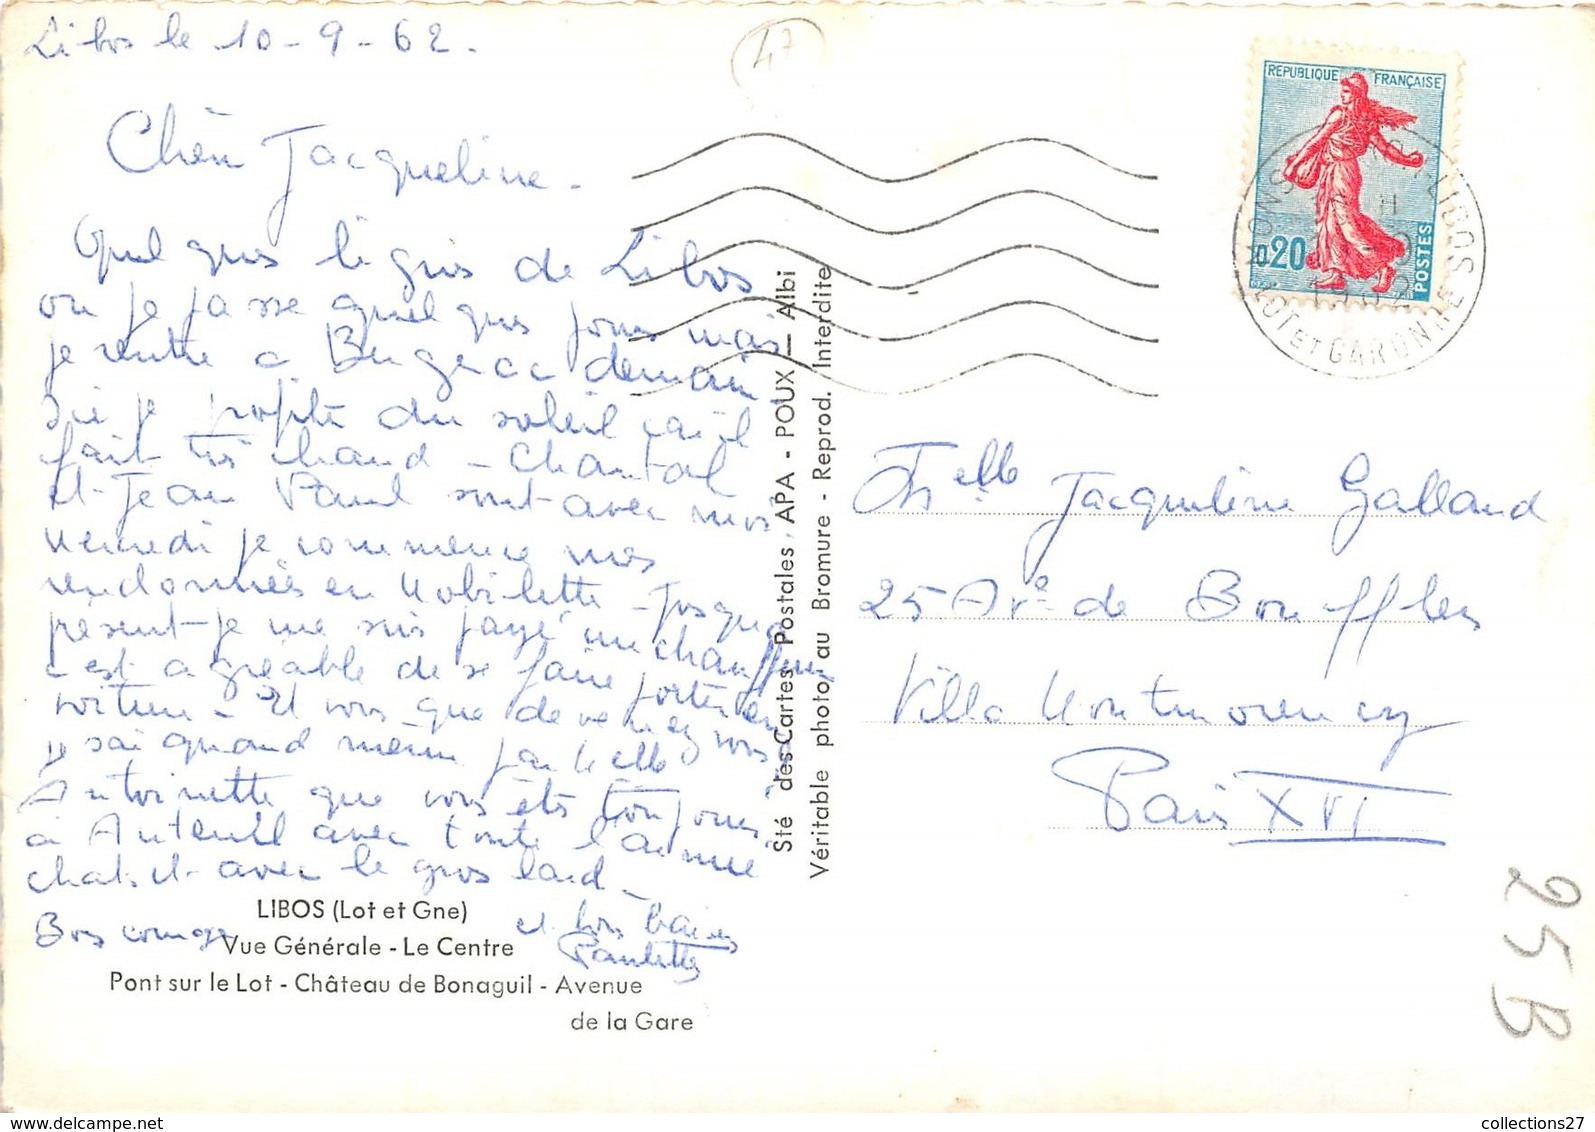 Libos le 10-9-62.
47
Chère Jacqueline -
Quelques lignes de Libos
ou je passe quelques jours mais
je rentre a Bergerac demain
Ici je profite du soleil car il
fait très chaud - Chantal
et Jean Paul sont avec moi
Mercredi je commence mes
randonnées en Mobilette - Jusqu'a
présent je me suis payé un chauffeur
c'est agréable de se faire porter en
voiture - Et vous que devenez vous
je sai quand meme par Melle
Antoinette que vous êtes toujours
à Auteuil avec toute l'armée
chats et avec le gros lard -
Bon courage
et bons baisers
Paulette
LIBOS (Lot et Gne)
Vue Générale - Le Centre
Pont sur le Lot - Château de Bonaguil - Avenue
de la Gare
Sté des Cartes Postales, APA - POUX — Albi
Véritable photo au Bromure - Reprod. Interdite
REPUBLIQUE FRANÇAISE
0,20
POSTES
LIBOS
LOT ET GARONNE
Melle Jacqueline Galland
25 Ave de Boufflers
Villa Montmorency
Paris XVI
25B
collections27